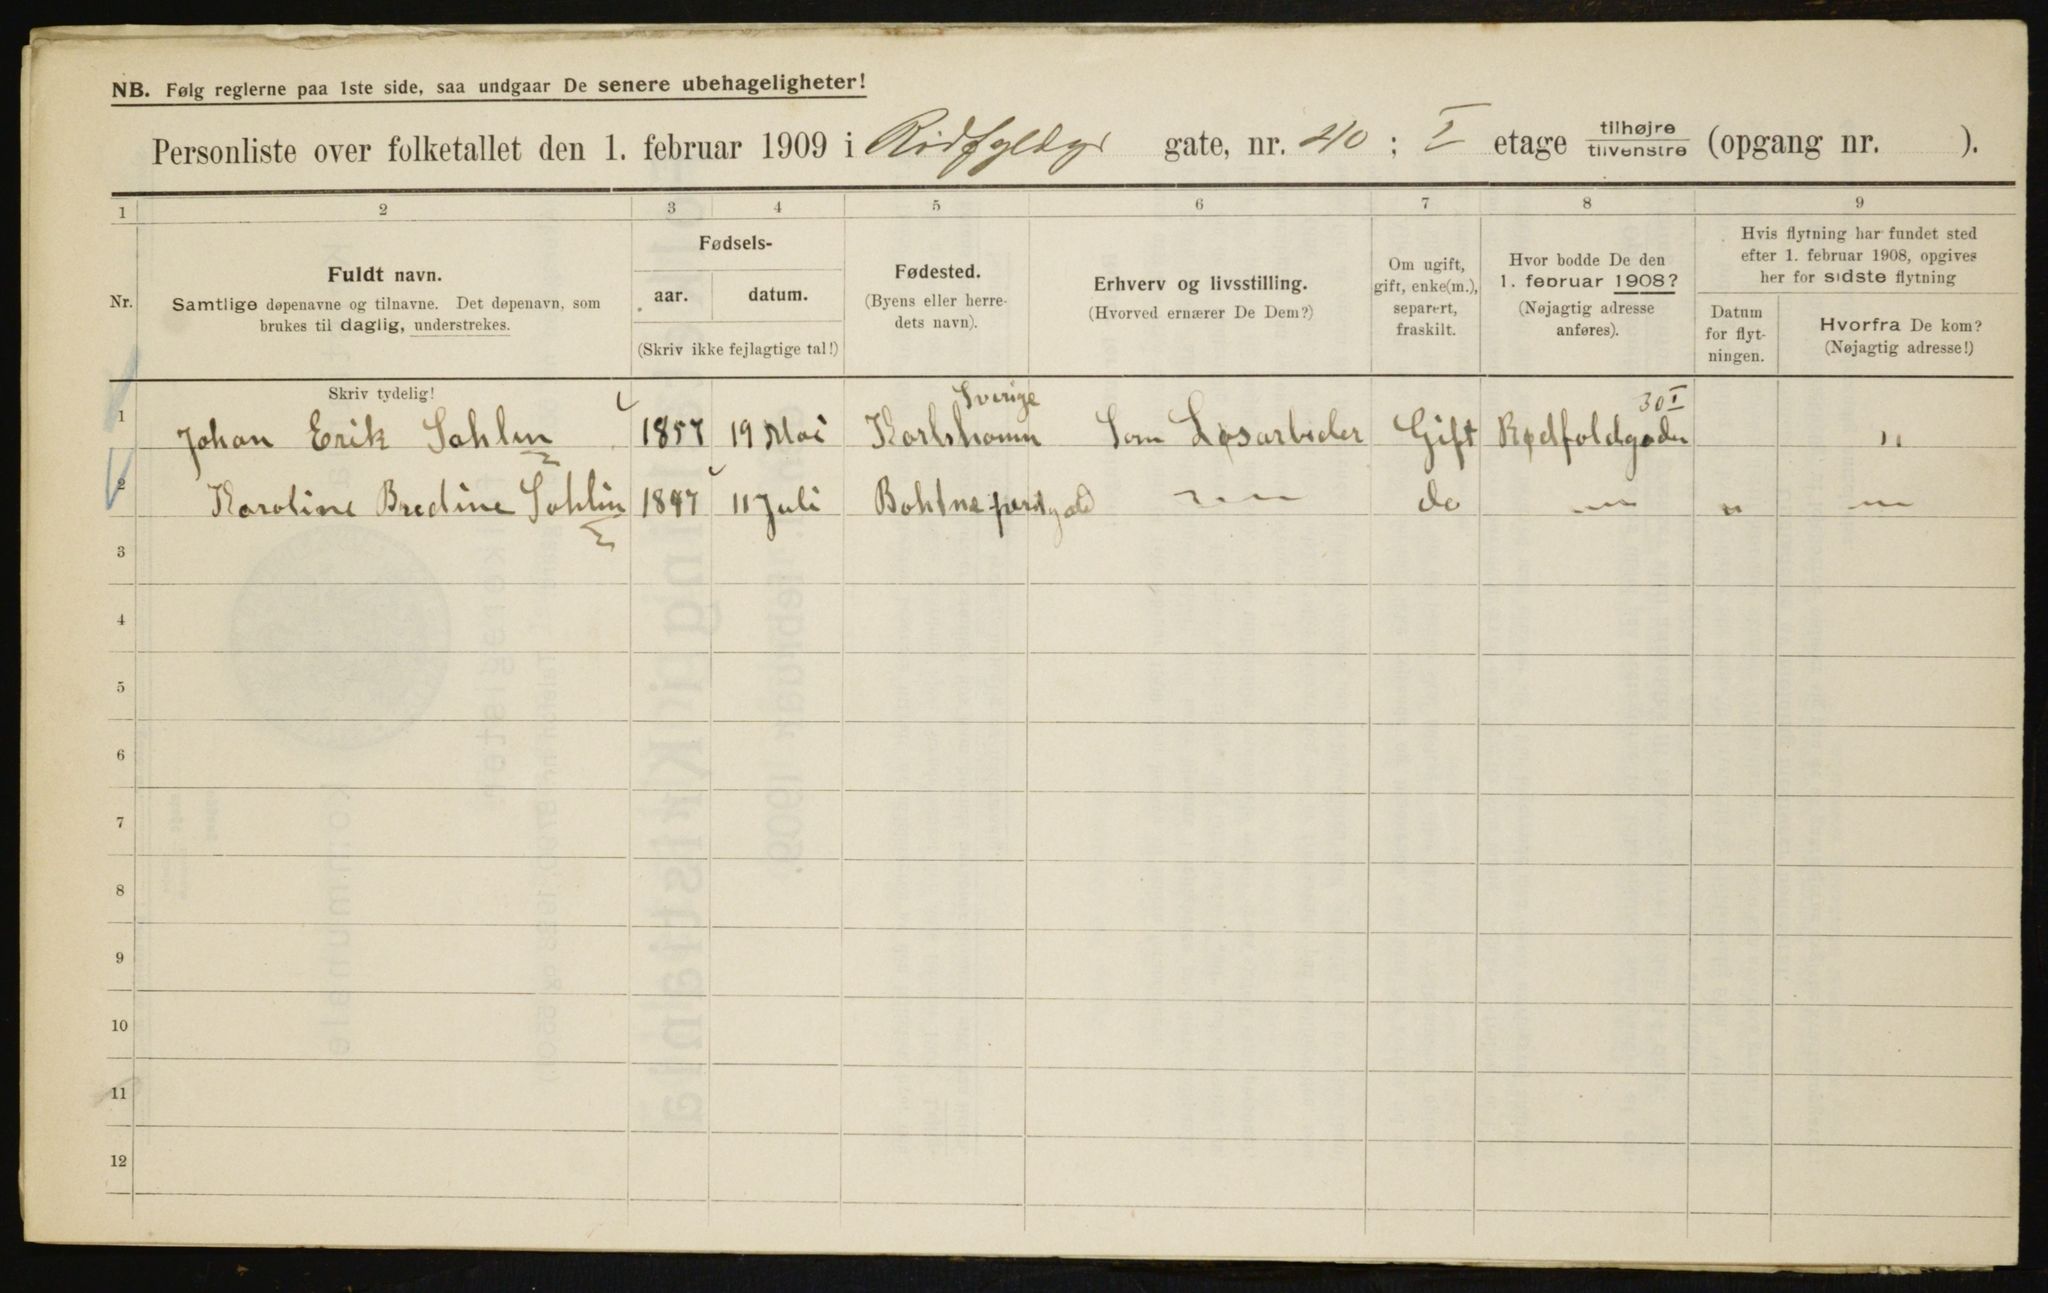 NB. Følg reglerne paa 1ste side, saa undgaar De senere ubehageligheter!
Personliste over folketallet den 1. februar 1909 i gate, nr. 40 ; I etage tilhøjre tilvenstre (opgang nr. ).
1 2 3 4 5 6 7 8 9
Nr.
Fuldt navn.
Samtlige døpenavne og tilnavne. Det døpenavn, som
brukes til daglig, understrekes.
Fødsels-
aar. datum.
(Skriv ikke fejlagtige tal!)
Fødested.
(Byens eller herre-
dets navn).
Erhverv og livsstilling.
(Hvorved ernærer De Dem?)
Om ugift,
gift, enke(m.),
separert,
fraskilt.
Hvor bodde De den
1. februar 1908?
(Nøjagtig adresse
anføres).
Hvis flytning har fundet sted
efter 1. februar 1908, opgives
her for sidste flytning
Datum
for flyt-
ningen.
Hvorfra De kom?
(Nøjagtig adresse!)
Skriv tydelig!
Sverige
30 I
1 Johan Erik Sahlin 1857 19 Mai Karlshamn Som Løsarbeider Gift Rødfoldgaden "
2 Karoline Bredine Sahlin 1847 11 Juli - " - do - " - " - " -
3
4
5
6
7
8
9
10
11
12